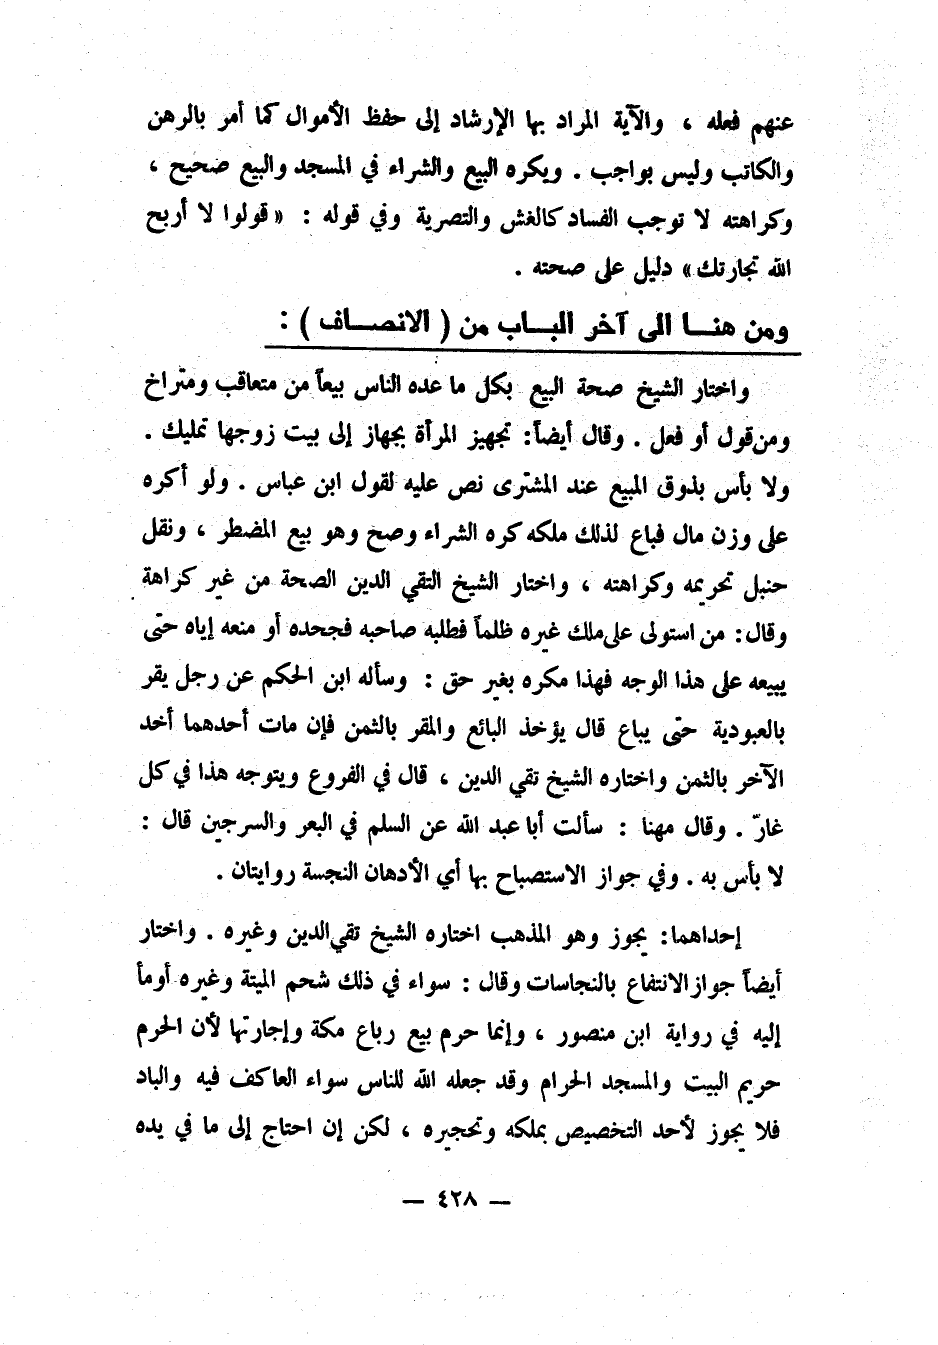 عنهم فعله ، والآية المراد بها الإرشاد إلى حفظ الأموال كما أمر بالرهن
والكاتب وليس بواجب . ويكره البيع والشراء في المسجد والبيع صحيح ،
وكراهته لا توجب الفساد كالغش والتصرية وفي قوله : « قولوا لا أربح
الله تجارتك » دليل على صحته .
ومن هنـــا الى آخر البـــاب من ( الانصـــاف ) :
واختار الشيخ صحة البيع بكل ما عده الناس بيعاً من متعاقب ومتراخ
ومن قول أو فعل . وقال أيضاً : تجهيز المرأة بجهاز إلى بيت زوجها تمليك .
ولا بأس بذوق المبيع عند المشترى نص عليه لقول ابن عباس . ولو أكره
على وزن مال فباع لذلك ملكه كره الشراء وصح وهو بيع المضطر ، ونقل
حنبل تحريمه وكراهته ، واختار الشيخ التقي الدين الصحة من غير كراهة
وقال : من استولى على ملك غيره ظلماً فطلبه صاحبه فجحده أو منعه إياه حتى
يبيعه على هذا الوجه فهذا مكره بغير حق : وسأله ابن الحكم عن رجل يقر
بالعبودية حتى يباع قال يؤخذ البائع والمقر بالثمن فإن مات أحدهما أخد
الآخر بالثمن واختاره الشيخ تقي الدين ، قال في الفروع ويتوجه هذا في كل
غارّ . وقال مهنا : سألت أبا عبد الله عن السلم في البعر والسرجين قال :
لا بأس به . وفي جواز الاستصباح بها أي الأدهان النجسة روايتان .
إحداهما : يجوز وهو المذهب اختاره الشيخ تقي الدين وغيره . واختار
أيضاً جواز الانتفاع بالنجاسات وقال : سواء في ذلك شحم الميتة وغيره أومأ
إليه في رواية ابن منصور ، وإنما حرم بيع رباع مكة وإجارتها لأن الحرم
حريم البيت والمسجد الحرام وقد جعله الله للناس سواء العاكف فيه والباد
فلا يجوز لأحد التخصيص بملكه وتحجيره ، لكن إن احتاج إلى ما في يده
— ٤٢٨ —